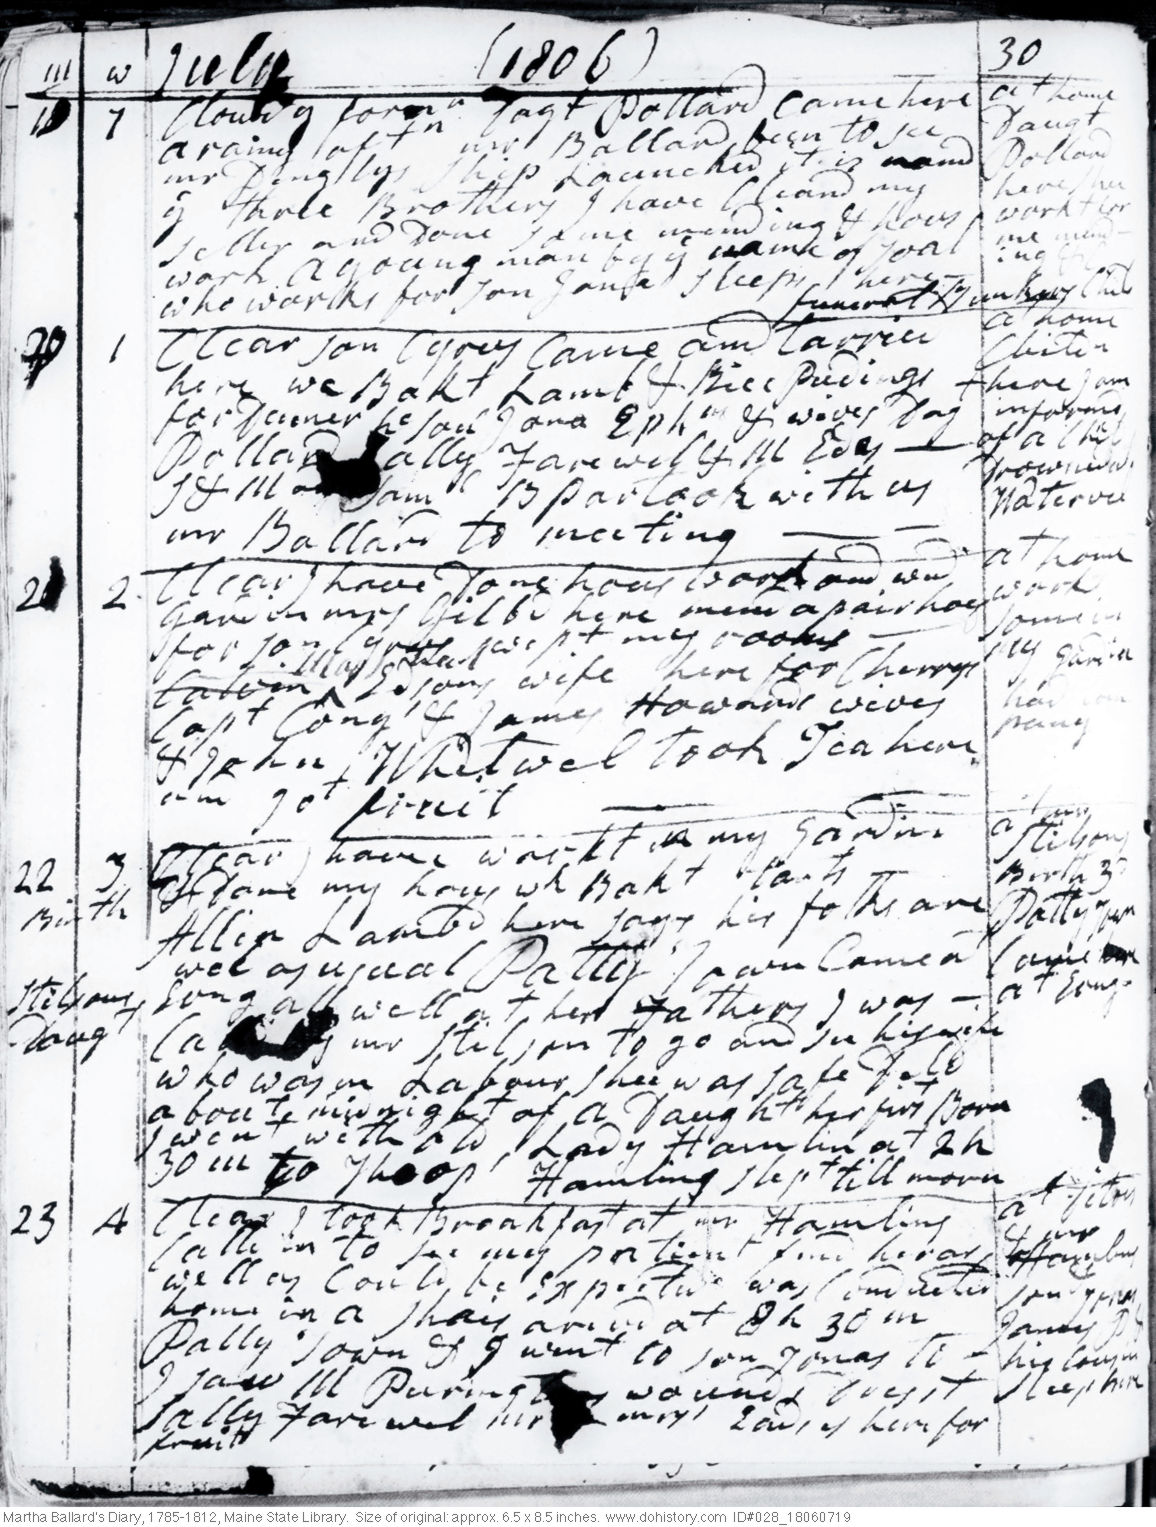 m w July (1806) 30
19 7 Cloudy foren<sup>n</sup> Dagt Pollard Came here at home
a rainy aft<sup>n</sup> mr Ballard been to see Daugt
mr Dinglys Ship Launched it is namd Pollard
ÿ three Brothers I have Cleand my here shee
seller and Done some mending & hous workt for
work A young man by ÿ name of Joal me mend-
who works for son Jona<sup>n</sup> sleeps here ing &c
funeral Child
20 1 Clear son Cyrus Came and tarried at home
here we Bakt Lamb & Rice Pudings
for Dinner he son Jona Eph<sup>m</sup> & wives Dag here I am
Pollard Sally Farewel & M Edes — informd of a Child
& M Sam<sup>l</sup> B partook with us Drownd at
mr Ballard to meeting — — Watervil
21 2 Clear I have Done hous work and wed at home
Garden mrs Gilbd here mend a pair hoes work
for son Cyrus swept my rooms — some in
Calvin Edsons wife here for Cherrys my Garden
Capt Cong<sup>r</sup> & James Howards wives had
& John Whitwel took Tea here company
and got fruit
22 3 Clear I have workt in my Gardin at home Stilsons
Birth & Done my hous w<sup>k</sup> Bakt Birth 3<sup>d</sup>
Allin Lambd here says his folks are Patty Town
well as usual Patty Town Came a Came here
Stilsons Long all well at her Fathers I was — at Eving
Daugt Calld by mr Stilson to go and see his wife
who was in Labour shee was safe Deld
about midnight of a Daught<sup>r</sup> her first Born
I went with old Lady Hamlin at 2 h
30 m to Hamlins slept till morn
23 4 Clear I took Breakfast at mr Hamlins at
Calld in to see my patient find her as & mr Hamlins
well as Could be Expected was Conducted son Jonas
home in a Shais arivd at 8 h 30 m James
Patty Town & I went to son Jonas his cousin
I saw M Puringtons wounds Drest sleep here
Sally Farewel mr & mrs Eads here for
fruit
Martha Ballard's Diary, 1785-1812, Maine State Library. Size of original: approx. 6.5 x 8.5 inches. www.dohistory.com ID#028_18060719